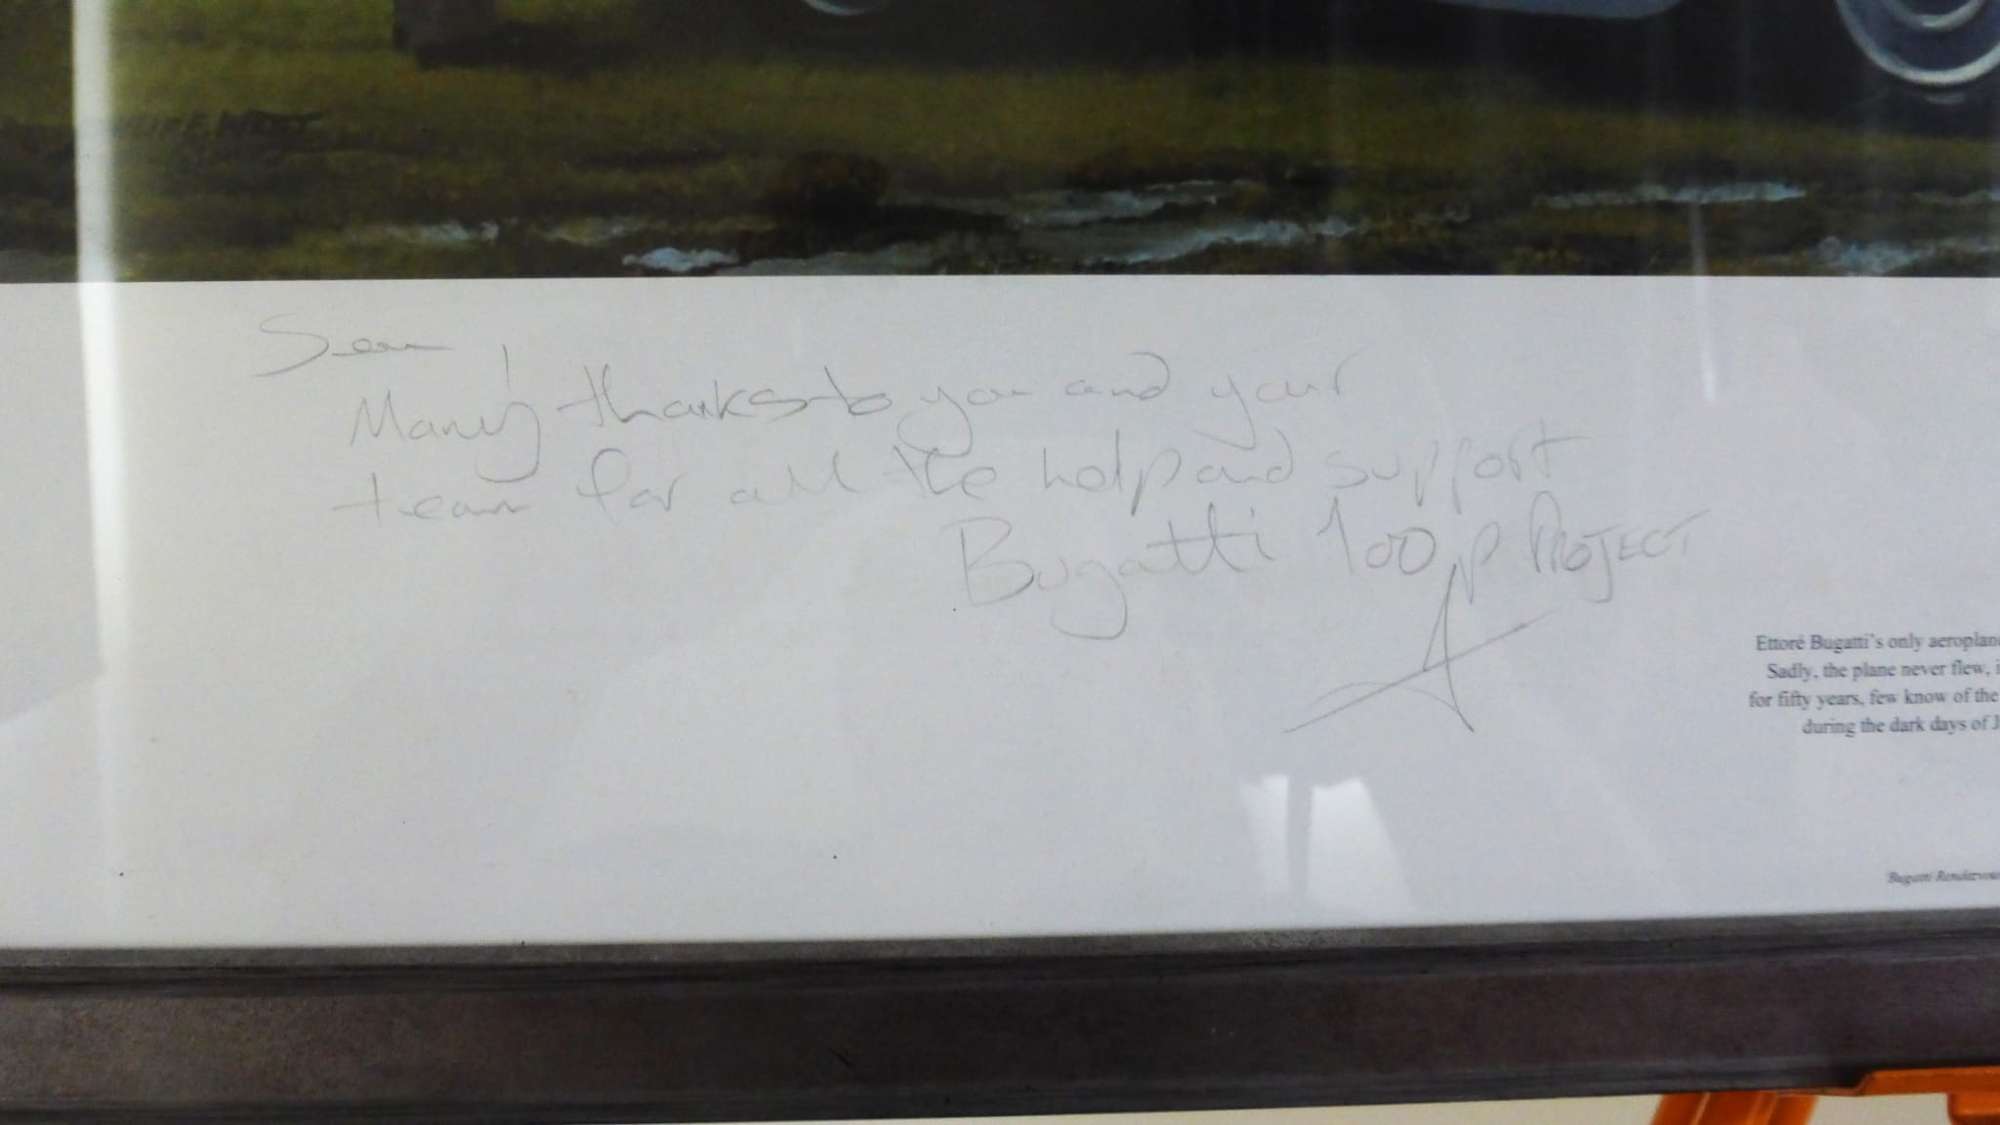 Sean
Many thanks to you and your
team for all the help and support
Bugatti 100p PROJECT
Ettoré Bugatti's only aeroplan
Sadly, the plane never flew, i
for fifty years, few know of the
during the dark days of J
Bugatti Rendezvous